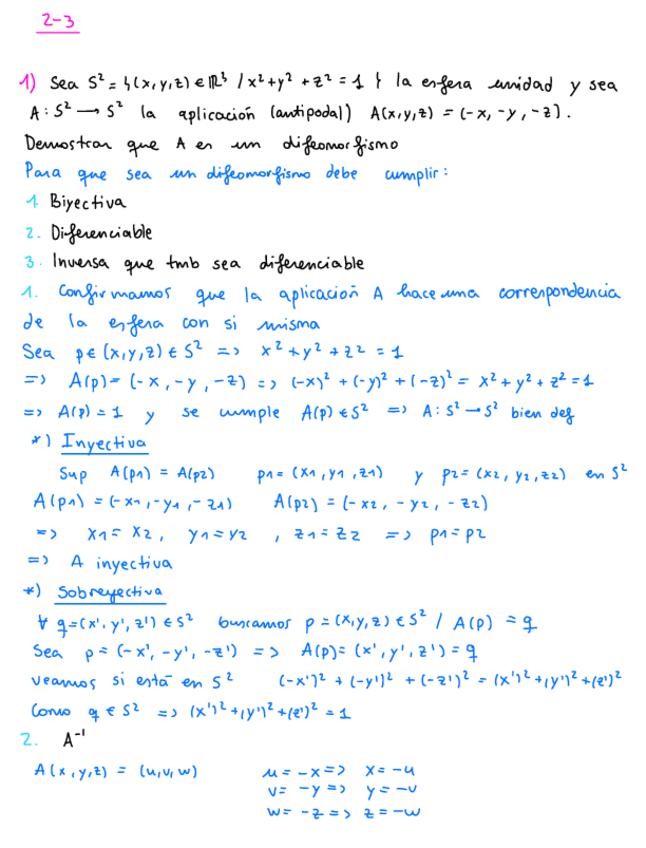 2-3
1) Sea S² = {(x,y,z) ∈ ℝ³ / x²+y²+z² = 1} la esfera unidad y sea
A: S² → S² la aplicación (antipodal) A(x,y,z) = (-x, -y, -z).
Demostrar que A es un difeomorfismo
Para que sea un difeomorfismo debe cumplir:
1. Biyectiva
2. Diferenciable
3. Inversa que tmb sea diferenciable
1. Confirmamos que la aplicación A hace una correspondencia
de la esfera con si misma
Sea p∈(x,y,z) ∈ S² => x²+y²+z² = 1
=> A(p) = (-x, -y, -z) => (-x)² + (-y)² + (-z)² = x²+y²+z² = 1
=> A(p) = 1 y se cumple A(p) ∈ S² => A: S² → S² bien def
*) Inyectiva
Sup A(p1) = A(p2) p1 = (x1, y1, z1) y p2 = (x2, y2, z2) en S²
A(p1) = (-x1, -y1, -z1) A(p2) = (-x2, -y2, -z2)
=> x1 = x2, y1 = y2, z1 = z2 => p1 = p2
=> A inyectiva
*) Sobreyectiva
∀ q=(x', y', z') ∈ S² buscamos p = (x,y,z) ∈ S² / A(p) = q
Sea p = (-x', -y', -z') => A(p) = (x', y', z') = q
veamos si está en S² (-x')² + (-y')² + (-z')² = (x')² + (y')² + (z')²
Como q ∈ S² => (x')² + (y')² + (z')² = 1
2. A⁻¹
A(x,y,z) = (u,v,w) u = -x => x = -u
v = -y => y = -v
w = -z => z = -w